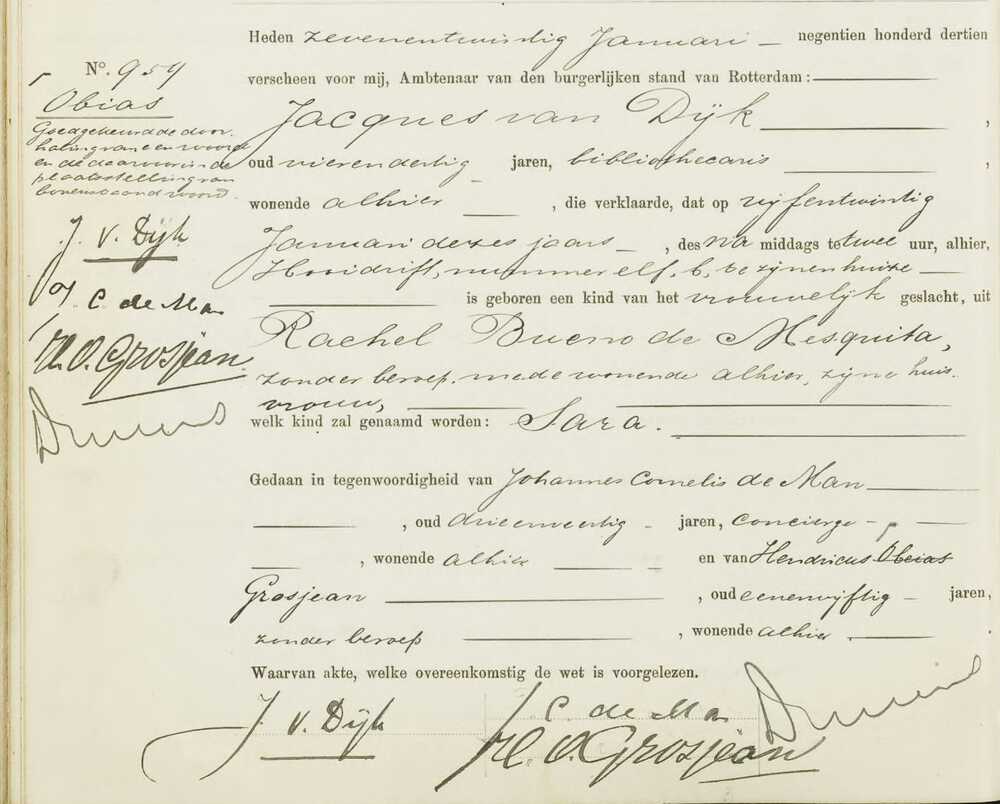 N°. 954
Obias
Goedgekeurd de door-
haling van een woord
en de daarvoor in de
plaatsstelling van
bovenstaand woord.
J. v. Dijk
J. C. de Man
H. O. Grosjean
Heden zevenentwintig Januari — negentien honderd dertien
verscheen voor mij, Ambtenaar van den burgerlijken stand van Rotterdam:
Jacques van Dijk ,
oud vierendertig jaren, bibliothecaris ,
wonende alhier , die verklaarde, dat op vijfentwintig
Januari dezes jaars — , des na middags te twee uur, alhier,
Hooidrift, nummer elf, b, te zijnen huize
is geboren een kind van het vrouwelijk geslacht, uit
Rachel Bueno de Mesquita,
zonder beroep, mede wonende alhier, zijne huis-
vrouw,
welk kind zal genaamd worden: Sara.
Gedaan in tegenwoordigheid van Johannes Cornelis de Man
, oud drieenveertig — jaren, concierge
, wonende alhier en van Hendricus
Grosjean , oud eenenvijftig — jaren,
zonder beroep , wonende alhier.
Waarvan akte, welke overeenkomstig de wet is voorgelezen.
J. v. Dijk
J. C. de Man
H. O. Grosjean